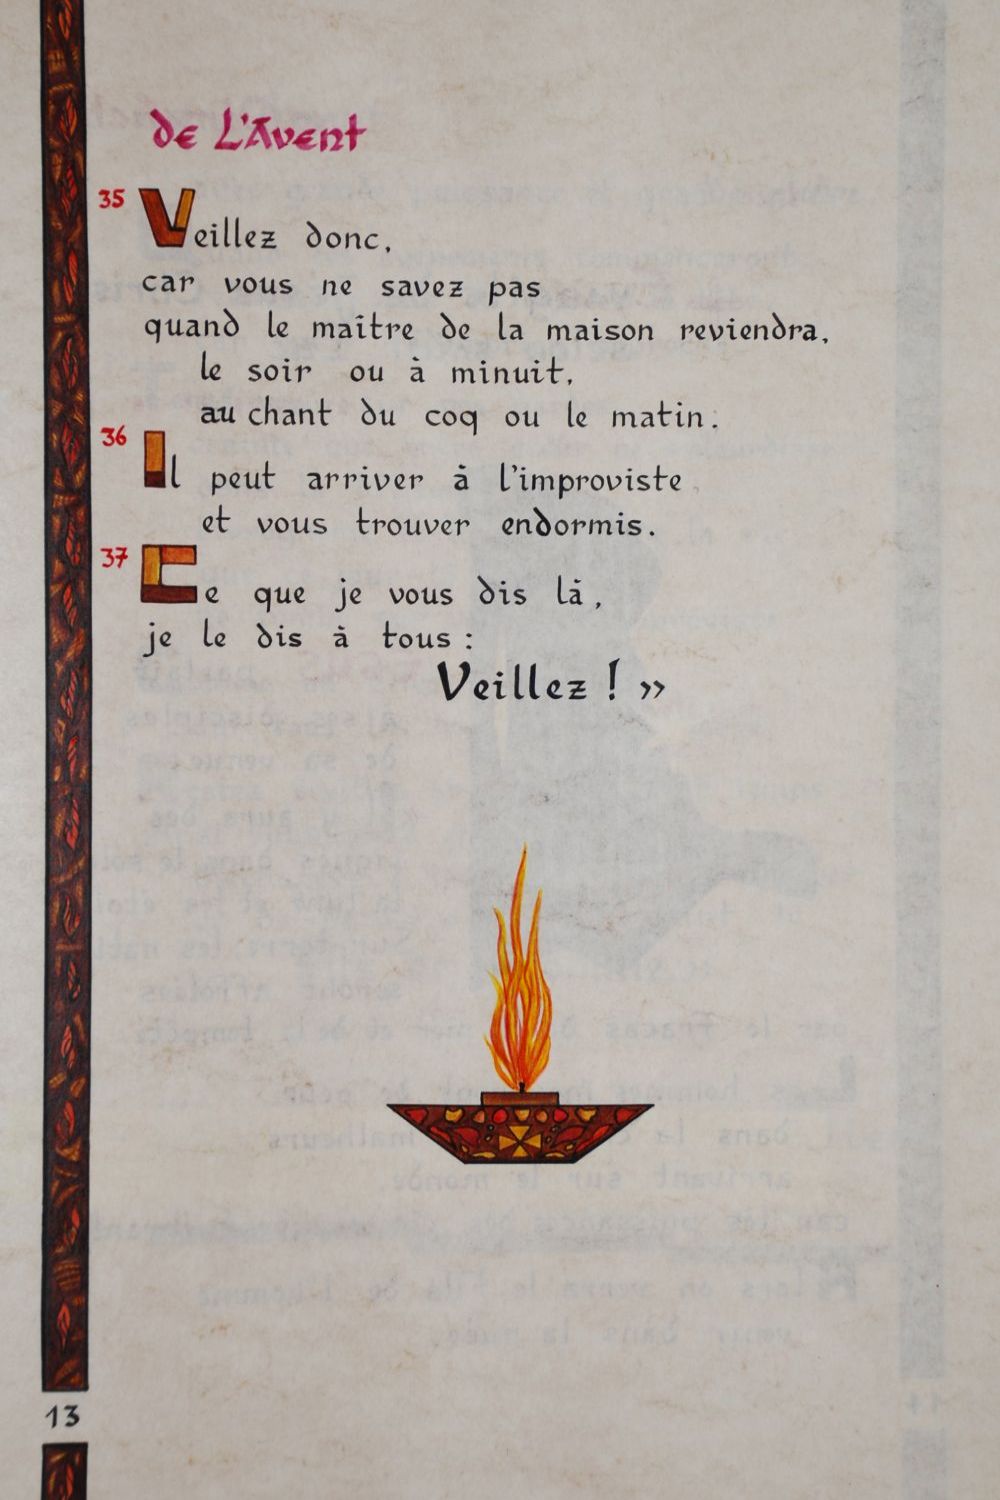 de L'Avent
35 Veillez donc,
car vous ne savez pas
quand le maître de la maison reviendra,
le soir ou à minuit,
au chant du coq ou le matin.
36 Il peut arriver à l'improviste
et vous trouver endormis.
37 Ce que je vous dis là,
je le dis à tous :
Veillez ! »
13